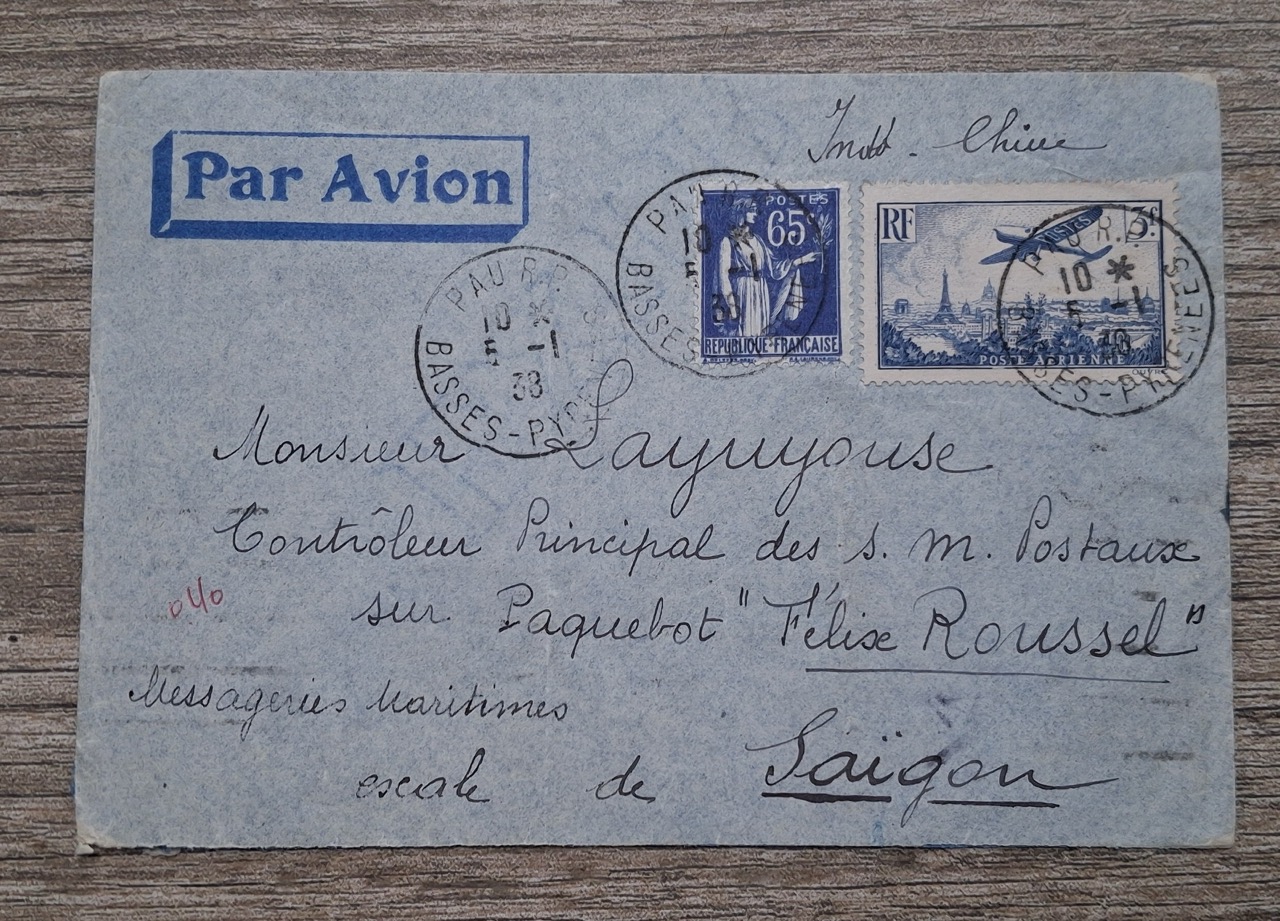 Par Avion
Indo-Chine
POSTES
65c
REPUBLIQUE FRANÇAISE
RF
POSTES
3f
POSTE AERIENNE
PAU R.P.
10 *
5 -1
38
BASSES-PYRENEES
PAU R.P.
10 *
5 -1
38
BASSES
PAU R.P.
10 *
5 -1
38
BASSES-PYRE
Monsieur Laguyouse
Contrôleur Principal des s. m. Postaux
sur Paquebot "Félix Roussel"
040
Messageries Maritimes
escale de Saïgon